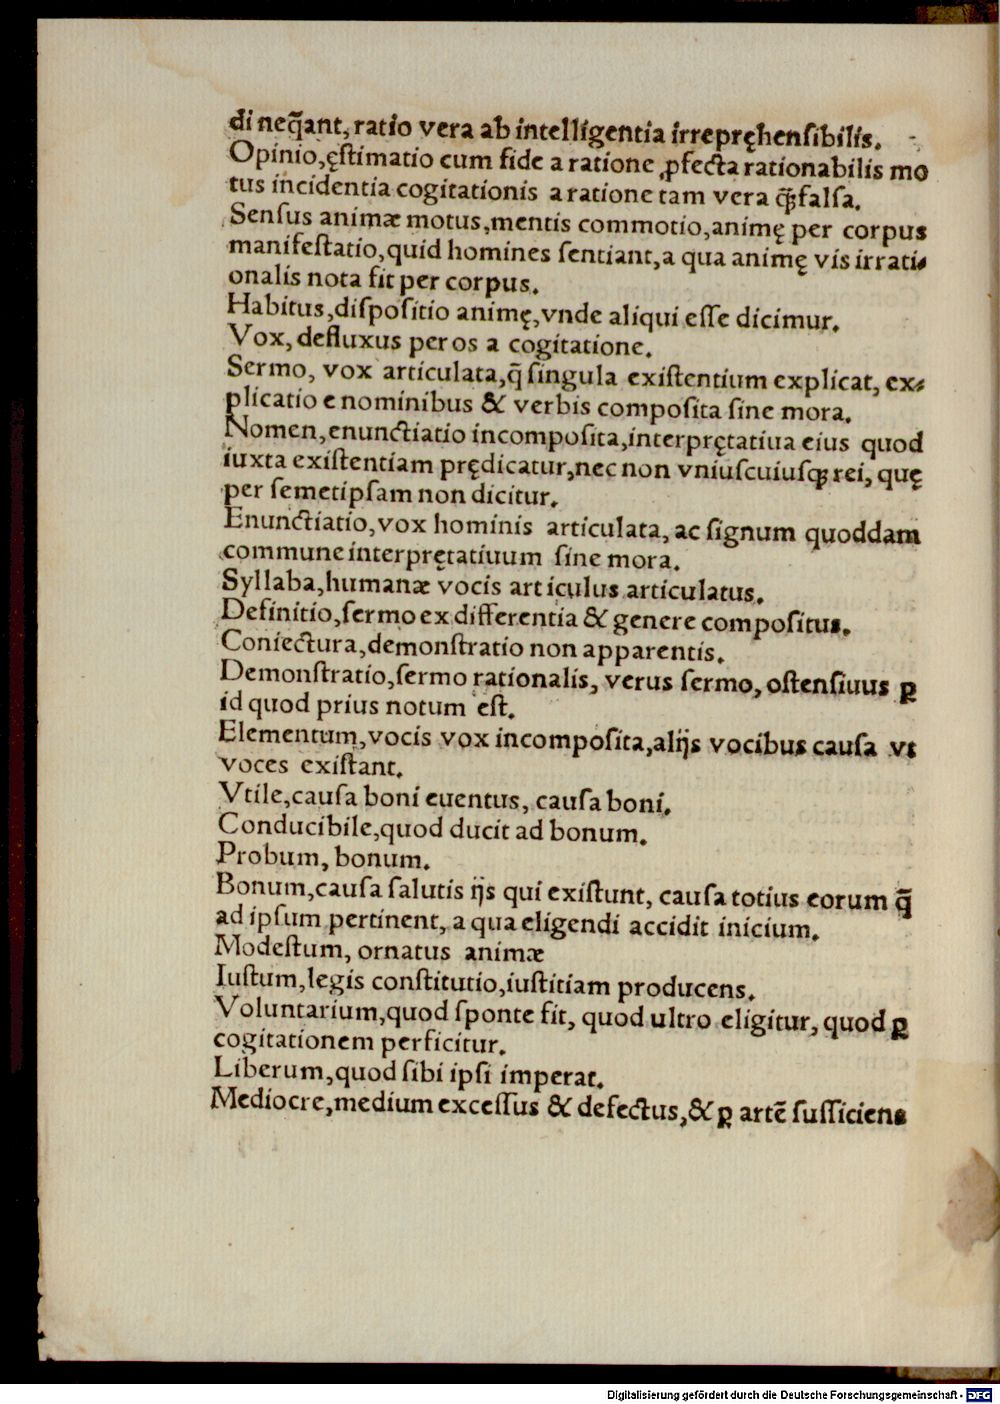 di neq̃ant, ratio vera ab intelligentia irrepręhensibilis.
Opinio, ęstimatio cum fide a ratione ꝓfecta rationabilis mo
tus incidentia cogitationis a ratione tam vera q̃ꝫ falsa.
Sensus animæ motus, mentis commotio, animę per corpus
manifestatio, quid homines sentiant, a qua animę vis irrati⸗
onalis nota fit per corpus.
Habitus, dispositio animę, vnde aliqui esse dicimur.
Vox, defluxus per os a cogitatione.
Sermo, vox articulata, q̃ singula existentium explicat, ex⸗
plicatio e nominibus & verbis composita sine mora.
Nomen, enunctiatio incomposita, interprętatiua eius quod
iuxta existentiam prędicatur, nec non vniuscuiusqꝫ rei, quę
per semetipsam non dicitur.
Enunctiatio, vox hominis articulata, ac signum quoddam
commune interprętatiuum sine mora.
Syllaba, humanæ vocis articulus articulatus.
Definitio, sermo ex differentia & genere compositus.
Coniectura, demonstratio non apparentis.
Demonstratio, sermo rationalis, verus sermo, ostensiuus ꝑ
id quod prius notum est.
Elementum, vocis vox incomposita, alijs vocibus causa vt
voces existant.
Vtile, causa boni euentus, causa boni.
Conducibile, quod ducit ad bonum.
Probum, bonum.
Bonum, causa salutis ijs qui existunt, causa totius eorum q̃
ad ipsum pertinent, a qua eligendi accidit inicium.
Modestum, ornatus animæ
Iustum, legis constitutio, iustitiam producens.
Voluntarium, quod sponte fit, quod ultro eligitur, quod ꝑ
cogitationem perficitur.
Liberum, quod sibi ipsi imperat.
Mediocre, medium excessus & defectus, & ꝑ artẽ sufficiens
Digitalisierung gefördert durch die Deutsche Forschungsgemeinschaft - DFG